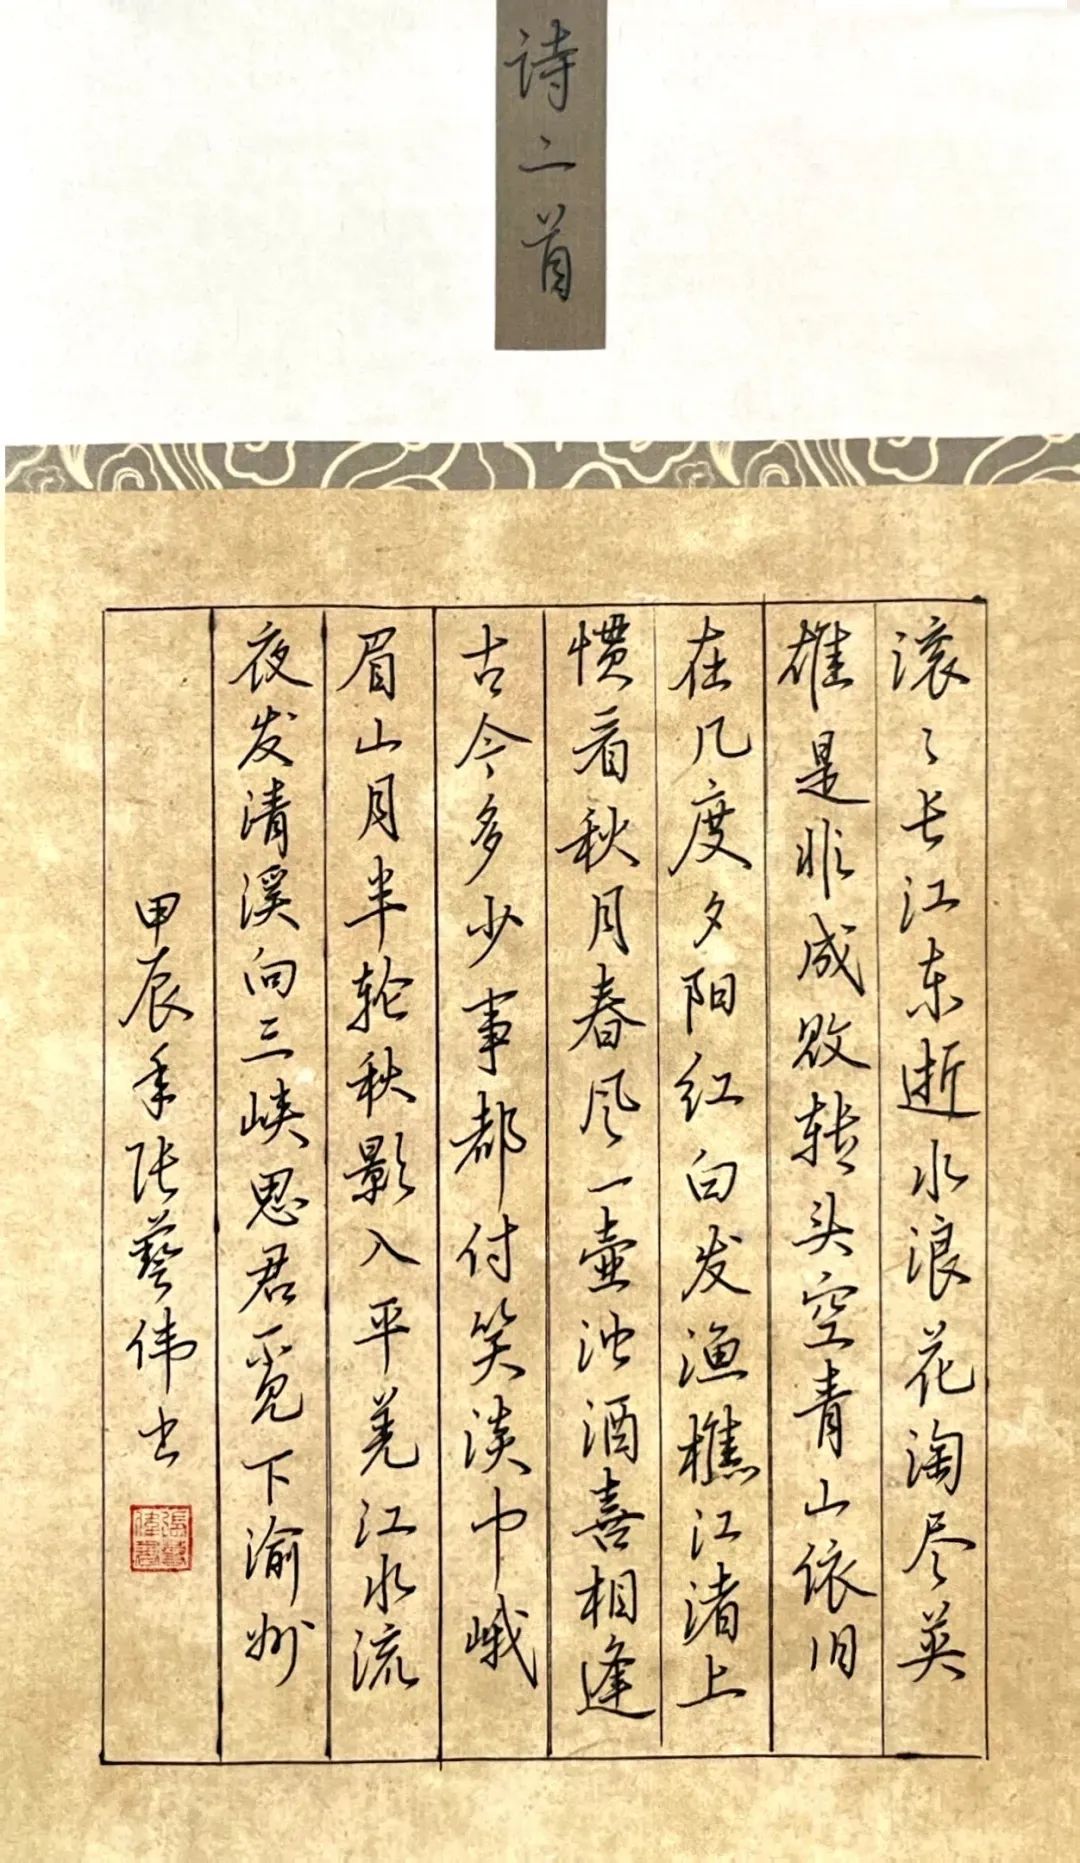 诗二首
滚〻长江东逝水浪花淘尽英
雄是非成败转头空青山依旧
在几度夕阳红白发渔樵江渚上
惯看秋月春风一壶浊酒喜相逢
古今多少事都付笑淡中峨
眉山月半轮秋影入平羌江水流
夜发清溪向三峡思君不见下渝州
甲辰年张藝伟书